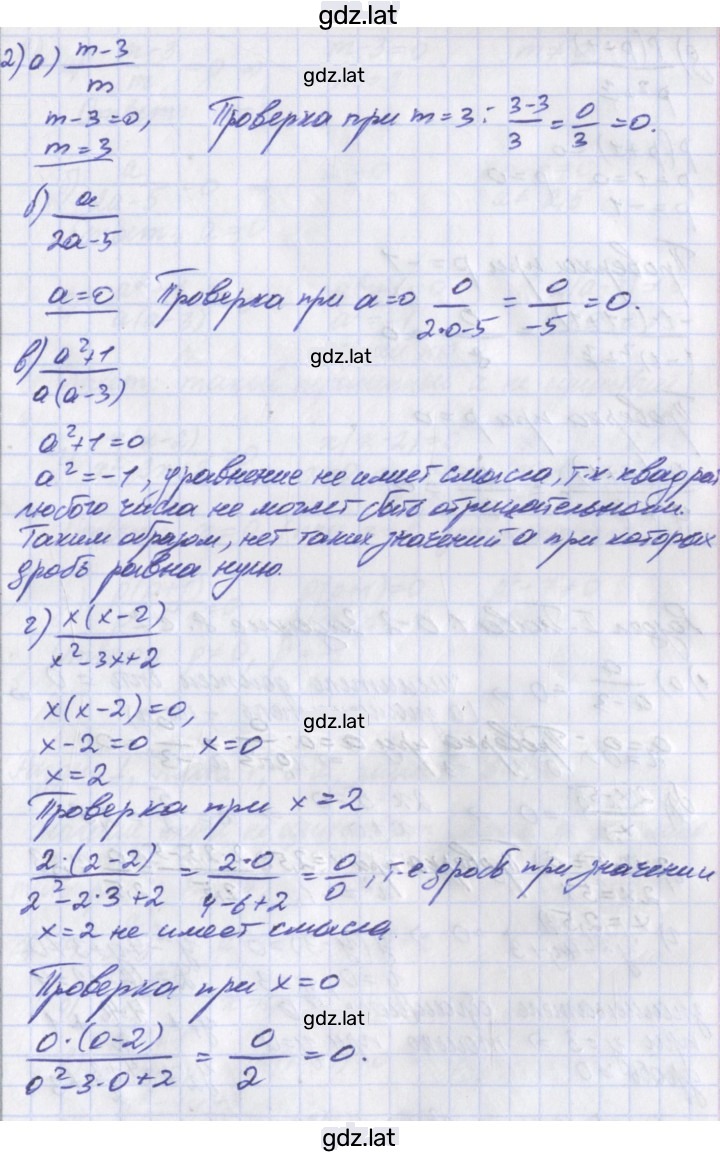 gdz.lat
2) а) (m-3)/m
gdz.lat
m-3=0, Проверка при m=3: (3-3)/3 = 0/3 = 0.
m=3
б) a/(2a-5)
a=0 Проверка при a=0 0/(2·0-5) = 0/(-5) = 0.
в) (a²+1)/(a(a-3))
gdz.lat
a²+1=0
a²=-1, уравнение не имеет смысла, т.к. квадрат
любого числа не может быть отрицательным.
Таким образом, нет таких значений a при которых
дробь равна нулю.
г) (x(x-2))/(x²-3x+2)
x(x-2)=0,
gdz.lat
x-2=0 x=0
x=2
Проверка при x=2
(2·(2-2))/(2²-2·3+2) = (2·0)/(4-6+2) = 0/0, т.е. дробь при значении
x=2 не имеет смысла.
Проверка при x=0
gdz.lat
(0·(0-2))/(0²-3·0+2) = 0/2 = 0.
gdz.lat